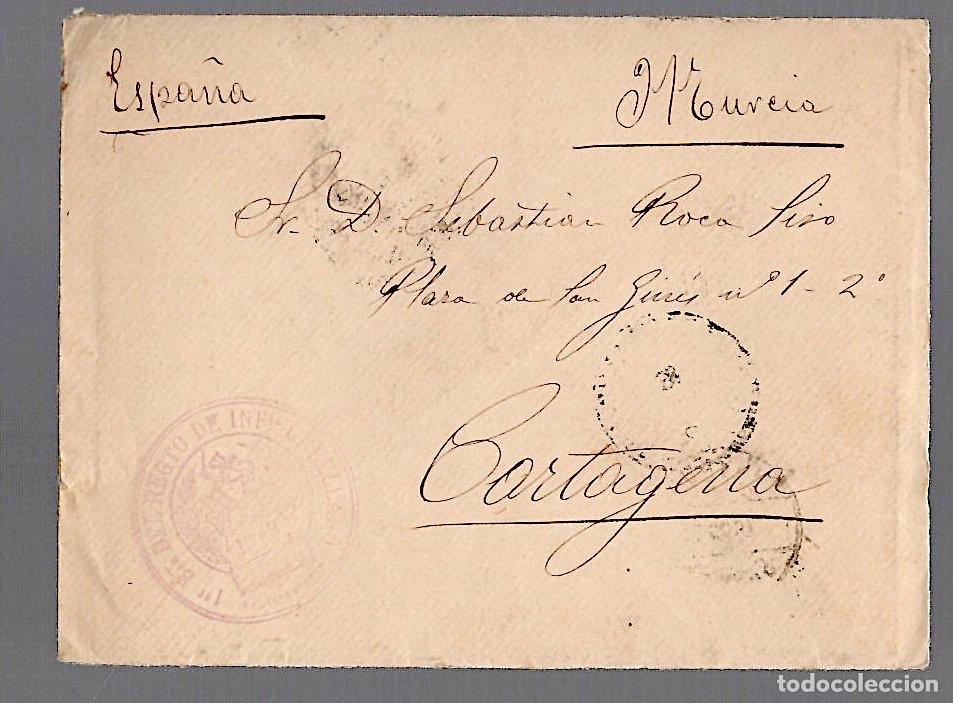 España
Murcia
Sr. D. Sebastian Roca Siso
Plaza de San Ginés nº 1 - 2º
Cartagena
REGTO DE INF
1er B
todocoleccion